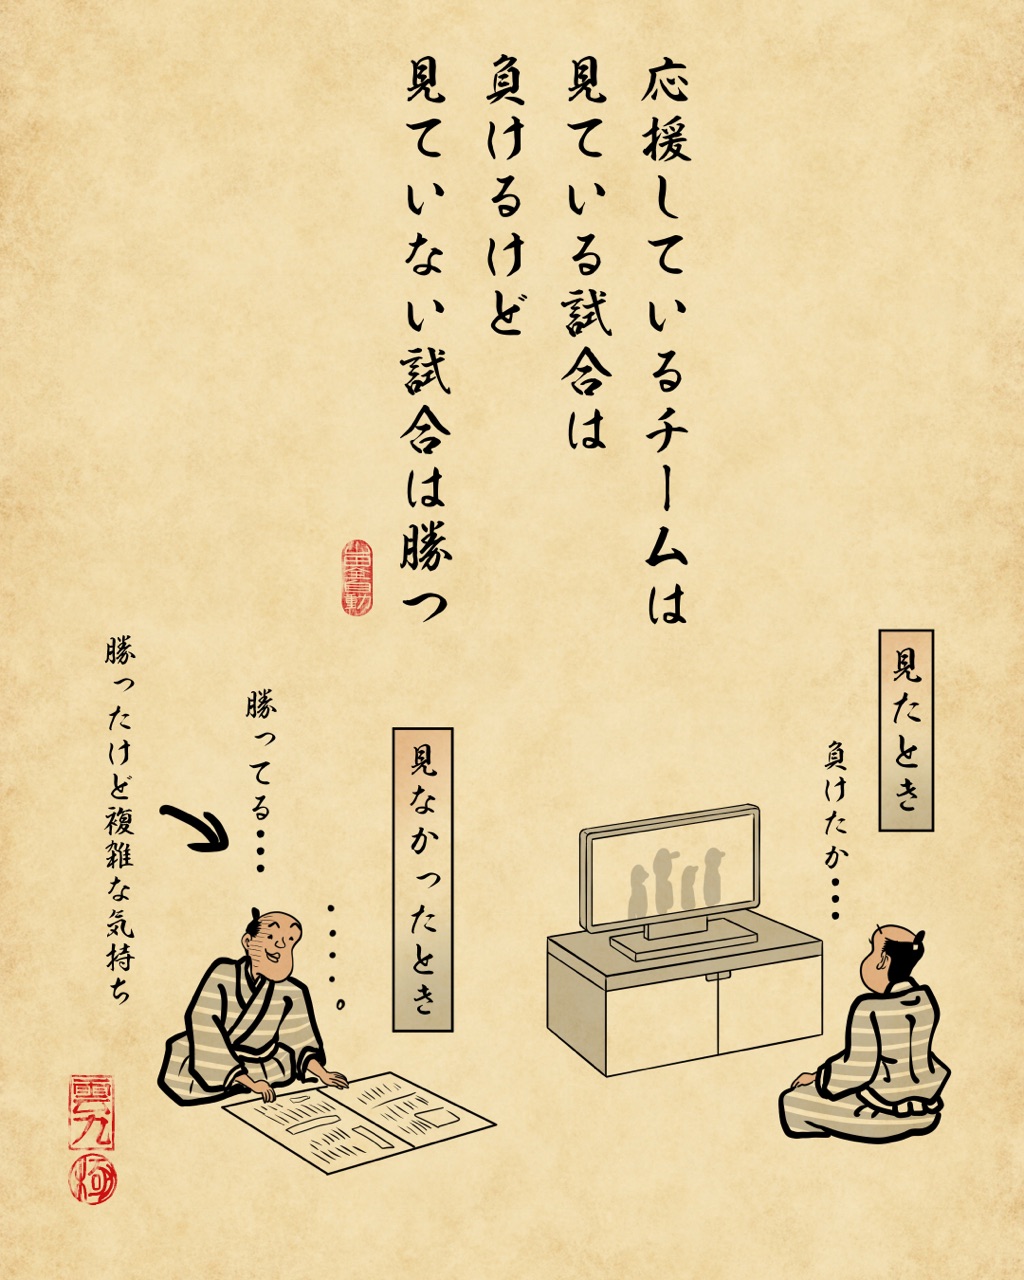 応援しているチームは
見ている試合は
負けるけど
見ていない試合は勝つ
見たとき
負けたか…
見なかったとき
・・・・。
勝ってる…
勝ったけど複雑な気持ち